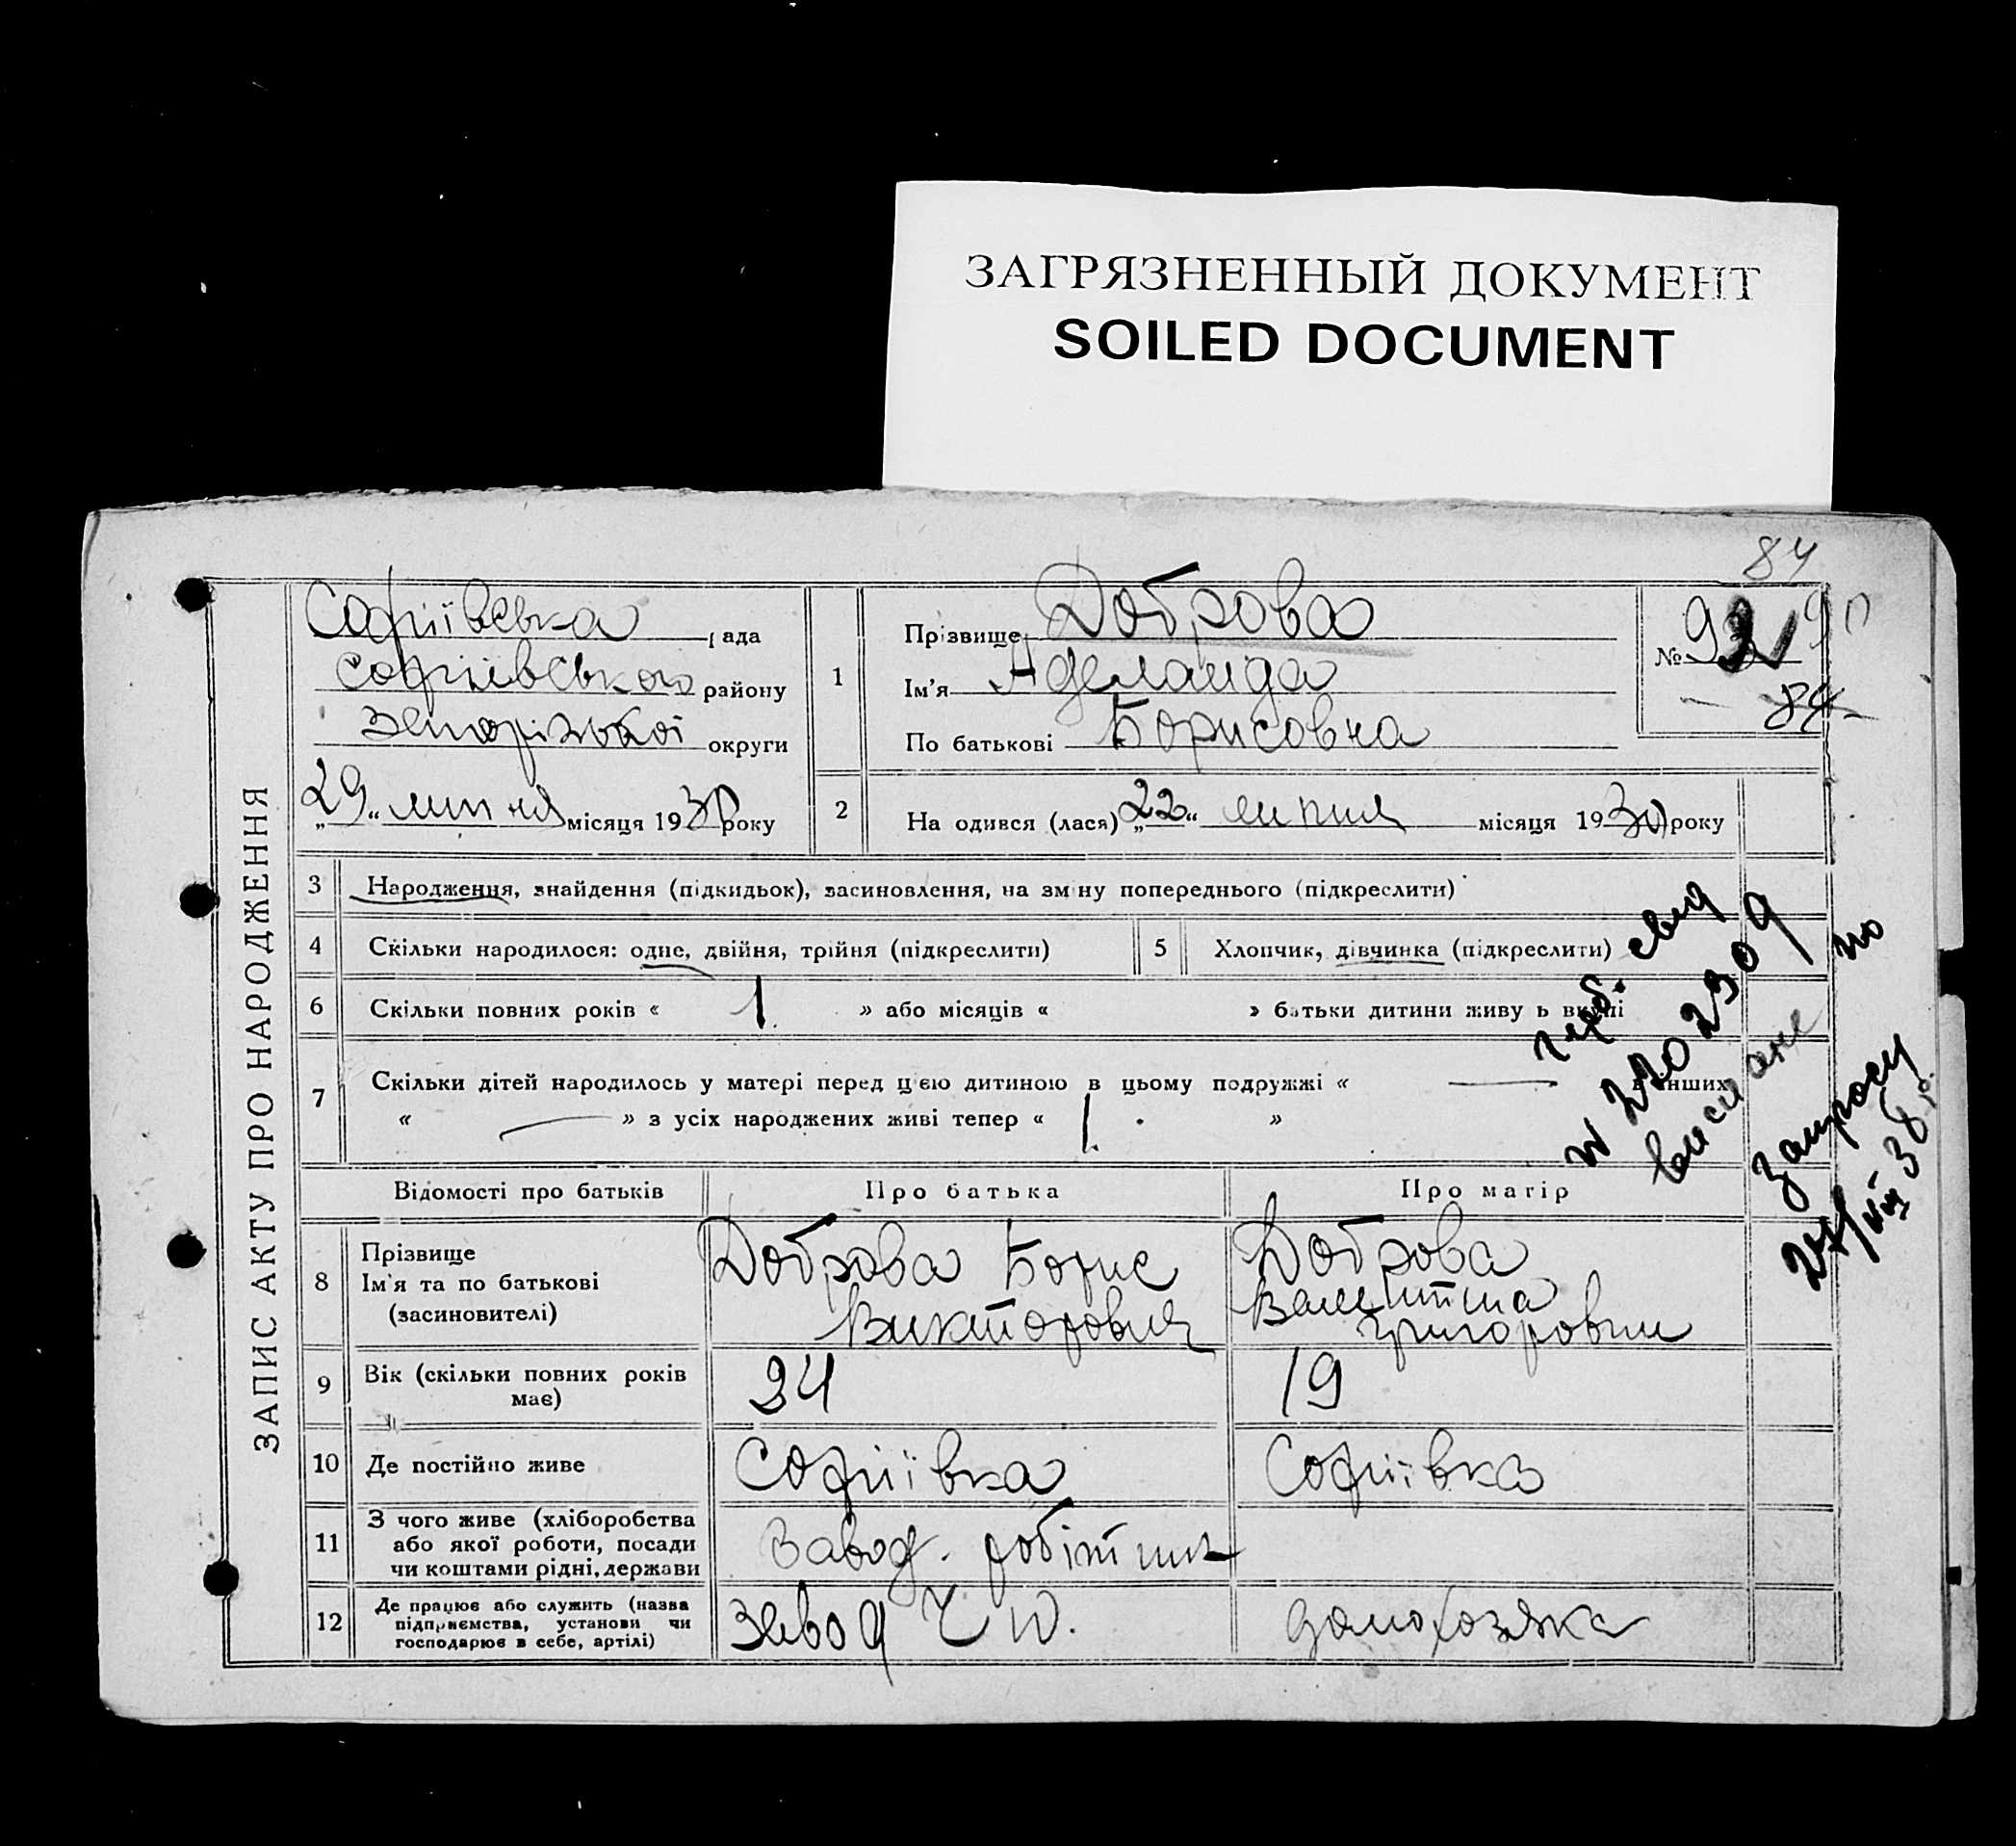 ЗАГРЯЗНЕННЫЙ ДОКУМЕНТ
SOILED DOCUMENT
84
ЗАПИС АКТУ ПРО НАРОДЖЕННЯ
Софіївська рада
Софіївського району
Запорізької округи
„29“ липня місяця 1930 року
1
Прізвище Доброва
Ім'я Аделаида
По батькові Борисовна
№ 93 90
84
2 На одився (лася) „22“ липня місяця 1930 року
3 Народження, знайдення (підкидьок), засиновлення, на зміну попереднього (підкреслити)
4 Скільки народилося: одне, двійня, трійня (підкреслити)
5 Хлопчик, дівчинка (підкреслити)
6 Скільки повних років « 1 » або місяців « » батьки дитини живу ь вкупі
7 Скільки дітей народилось у матері перед цією дитиною в цьому подружжі « — в інших
« — » з усіх народжених живі тепер « 1. »
герб. свид
№ 220239
выслано по
запросу
27/VIII 38 г.
Відомості про батьків Про батька Про матір
8 Прізвище
Ім'я та по батькові
(засиновителі)
Доброва Борис
Викторович
Доброва
Валентина
Григоровни
9 Вік (скільки повних років
має)
24 19
10 Де постійно живе Софіївка Софіївка
11 З чого живе (хліборобства
або якої роботи, посади
чи коштами рідні, держави
Завод. робітник
12 Де працює або служить (назва
підприємства, установи чи
господарює в себе, артілі)
Завод домохозяйка